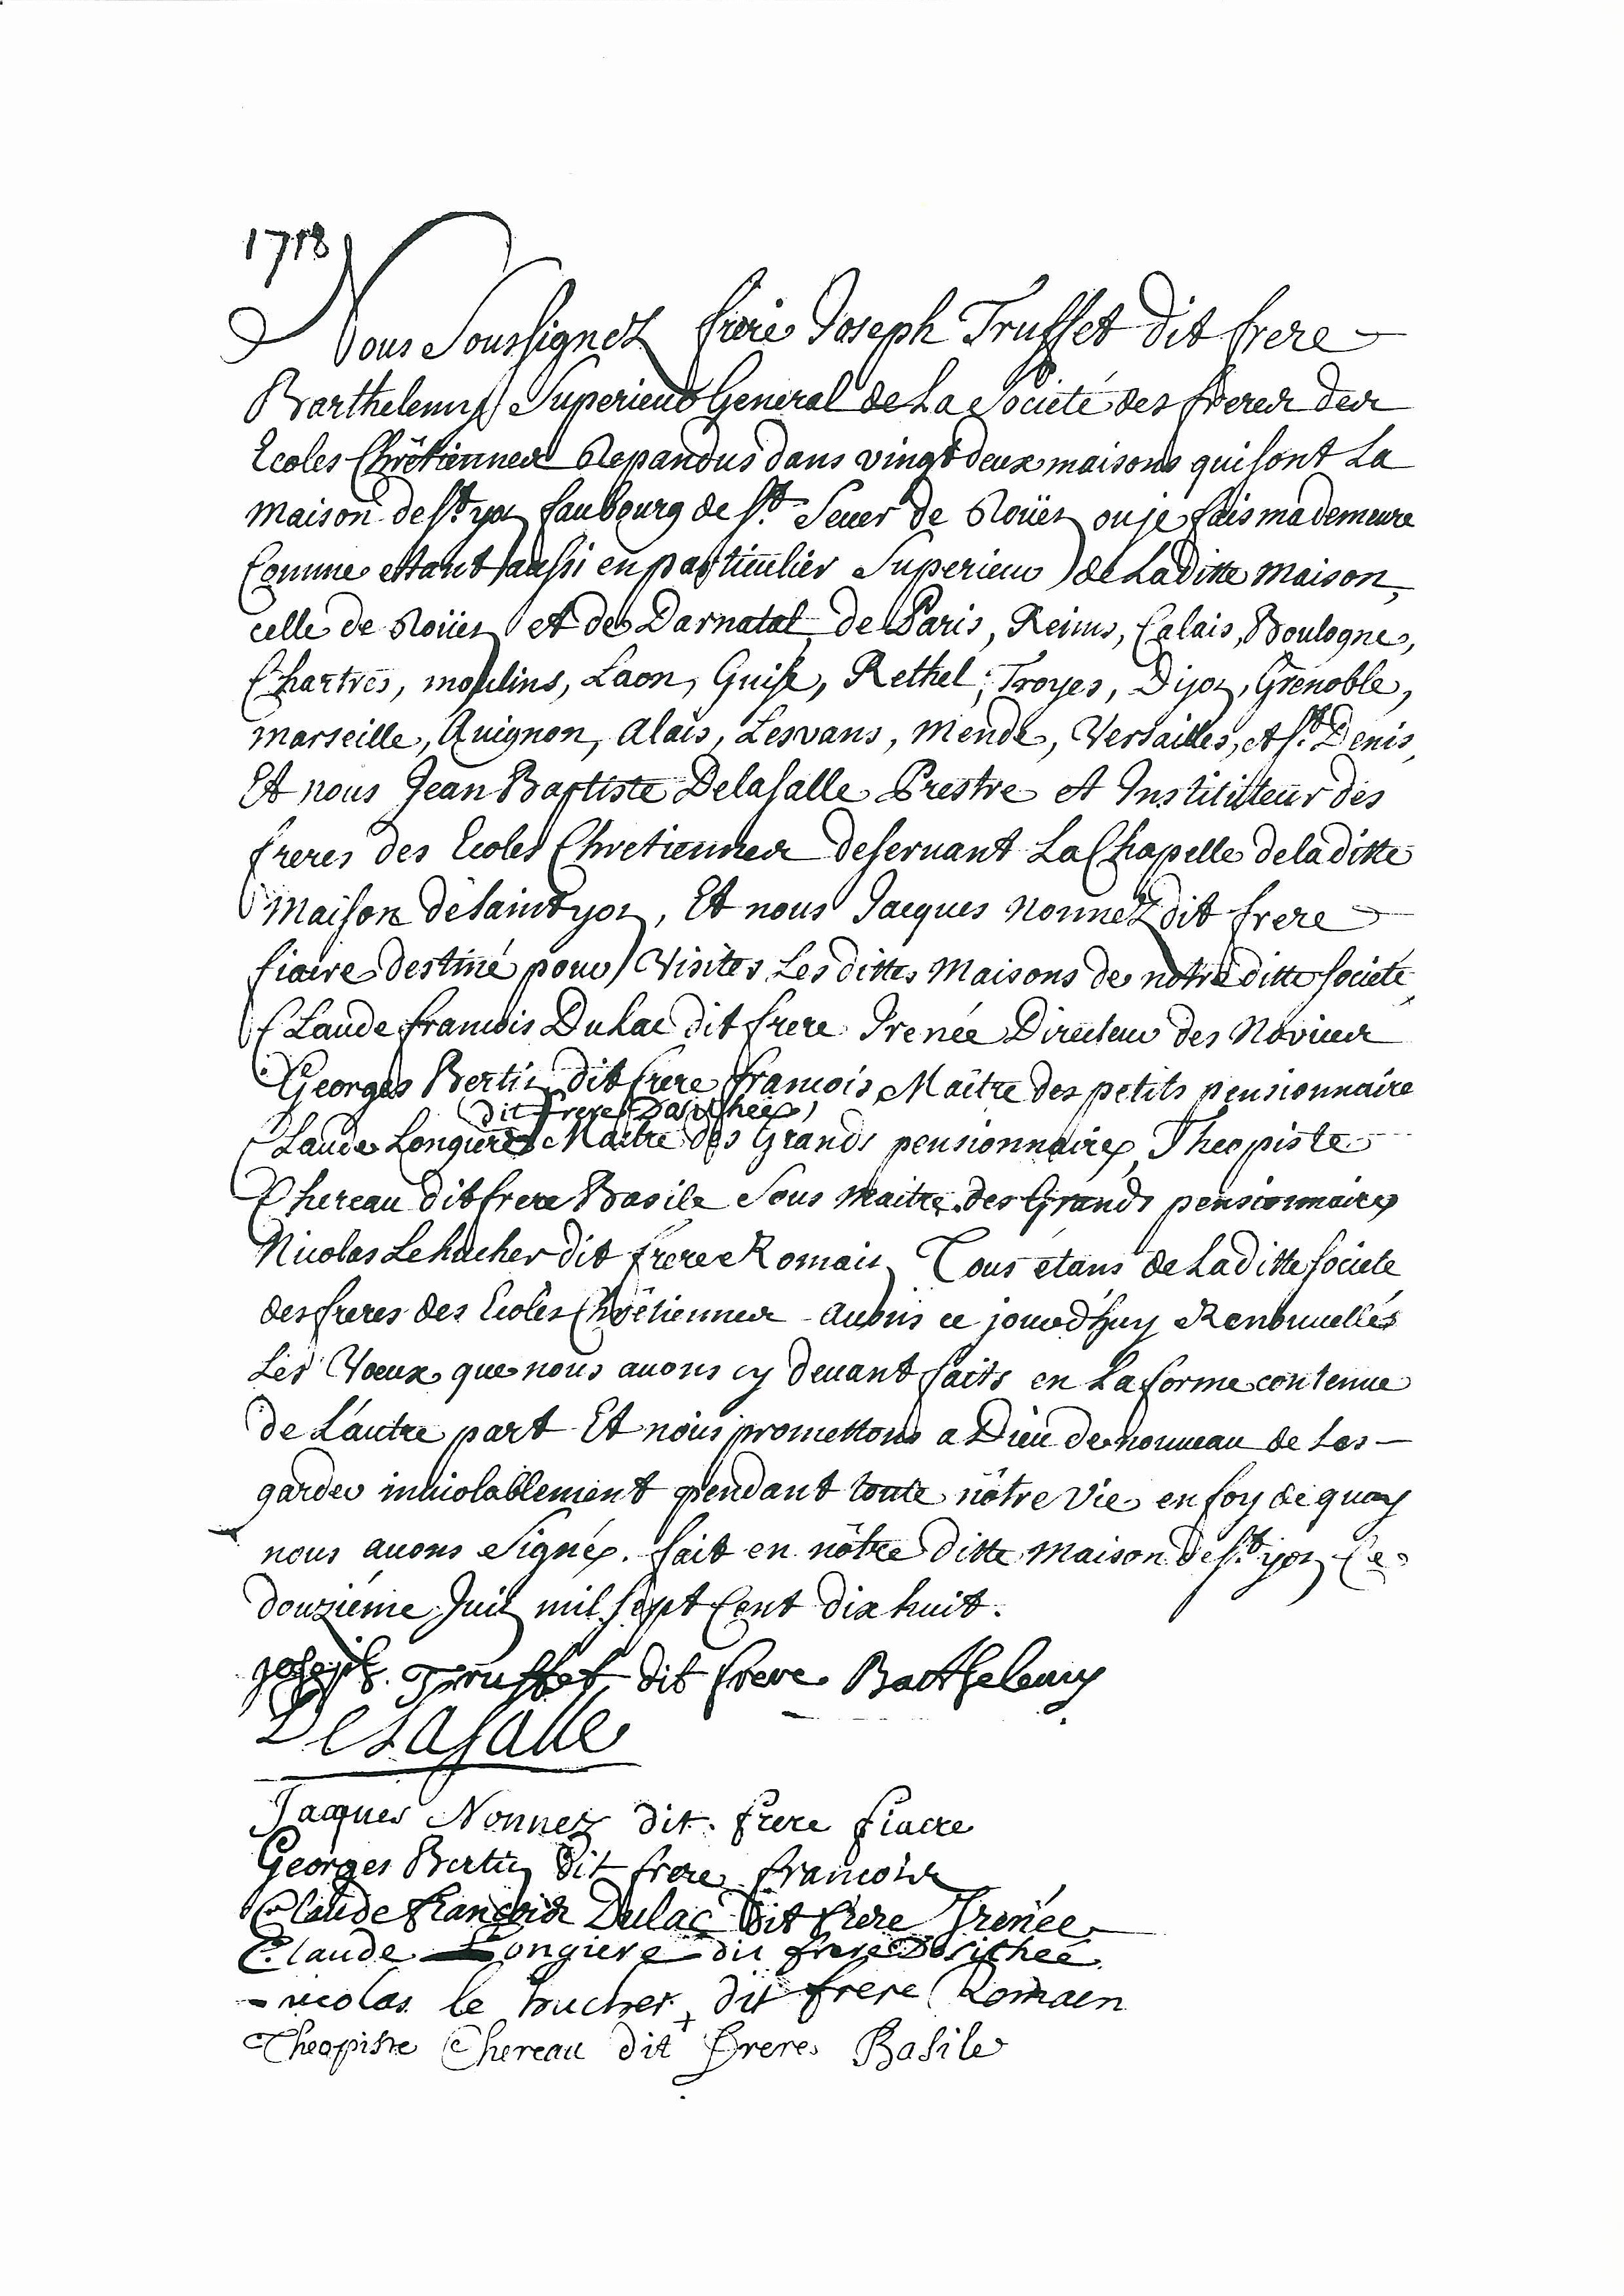 1718
Nous Soussignez frere Joseph Truffet dit frere
Barthelemy Superieur General de La Societé des freres des
Ecoles Chrêtiennes Repandus dans vingt deux maisons qui sont La
maison de St. yon faubourg de St. Sever de Roüen ou je fais ma demeure
Comme estant aussi en particulier Superieur de Laditte maison,
celle de Roüen et de Darnatal de Paris, Reims, Calais, Boulogne,
Chartres, moulins, Laon, Guise, Rethel, Troyes, Dijon, Grenoble,
marseille, Auignon, Alais, Lesvans, Mende, Versailles, et St. Denis,
Et nous Jean Baptiste Delasalle Prestre et Instititteur des
freres des Ecoles Chretiennes deservant La Chapelle de laditte
Maison de saint yon, Et nous Jacques Nonnez dit frere
fiacre destiné pour Visiter Les dittes Maisons de notre ditte societé
Claude francois Dulac dit frere Irenée Directeur des Novices
Georges Bertin dit frere francois Maître des petits pensionnaire
dit frere Dosithée
Claude Longiere Maitre des Grands pensionnaires Theopiste
Chereau dit frere Basile Sous Maitre des Grands pensionnaires
Nicolas Lehucher dit frere Romain Tous étans de Laditte societe
des freres des Ecoles Chrêtiennes auons ce jourd'huy Renouuellés
Les Voeux que nous auons cy deuant faits en La forme contenue
de L'autre part Et nous promettons a Dieu de nouueau de Les
garder inuiolablement pendant toute nôtre Vie en foy de quoy
nous auons Signés. fait en nôtre ditte maison de St. yon Ce
douziéme Juin mil sept Cent dix huit.
joseph. Truffet dit frere Barthelemy
DeLaSalle
Jacques Nonnez dit frere fiacre
Georges Bertin dit frere francois
Claude francois Dulac dit frere Irenée
Claude Longiere dit frere Dosithée
nicolas le hucher dit frere Romain
Theopiste Chereau dit Frere Basile